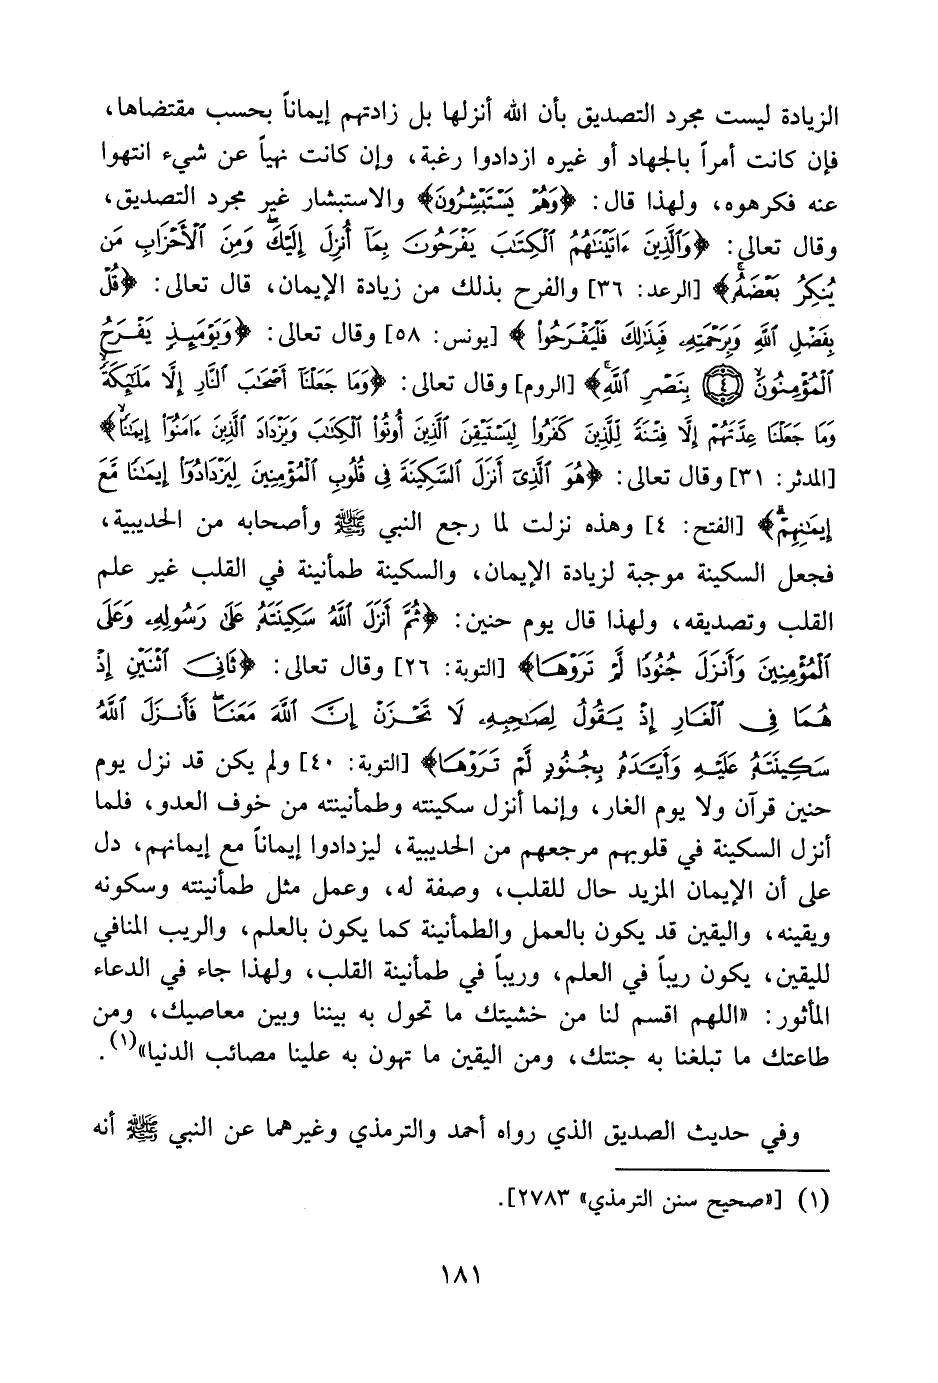 الزيادة ليست مجرد التصديق بأن الله أنزلها بل زادتهم إيماناً بحسب مقتضاها،
فإن كانت أمراً بالجهاد أو غيره ازدادوا رغبة، وإن كانت نهياً عن شيء انتهوا
عنه فكرهوه، ولهذا قال: ﴿وَهُمْ يَسْتَبْشِرُونَ﴾ والاستبشار غير مجرد التصديق،
وقال تعالى: ﴿وَٱلَّذِينَ ءَاتَيْنَٰهُمُ ٱلْكِتَٰبَ يَفْرَحُونَ بِمَآ أُنزِلَ إِلَيْكَۖ وَمِنَ ٱلْأَحْزَابِ مَن
يُنكِرُ بَعْضَهُۥۚ﴾ [الرعد: ٣٦] والفرح بذلك من زيادة الإيمان، قال تعالى: ﴿قُلْ
بِفَضْلِ ٱللَّهِ وَبِرَحْمَتِهِۦ فَبِذَٰلِكَ فَلْيَفْرَحُوا۟﴾ [يونس: ٥٨] وقال تعالى: ﴿وَيَوْمَئِذٍ يَفْرَحُ
ٱلْمُؤْمِنُونَۙ ﴿٤﴾ بِنَصْرِ ٱللَّهِۚ﴾ [الروم] وقال تعالى: ﴿وَمَا جَعَلْنَآ أَصْحَٰبَ ٱلنَّارِ إِلَّا مَلَٰٓئِكَةًۙ
وَمَا جَعَلْنَا عِدَّتَهُمْ إِلَّا فِتْنَةً لِّلَّذِينَ كَفَرُوا۟ لِيَسْتَيْقِنَ ٱلَّذِينَ أُوتُوا۟ ٱلْكِتَٰبَ وَيَزْدَادَ ٱلَّذِينَ ءَامَنُوٓا۟ إِيمَٰنًاۙ﴾
[المدثر: ٣١] وقال تعالى: ﴿هُوَ ٱلَّذِىٓ أَنزَلَ ٱلسَّكِينَةَ فِى قُلُوبِ ٱلْمُؤْمِنِينَ لِيَزْدَادُوٓا۟ إِيمَٰنًا مَّعَ
إِيمَٰنِهِمْۗ﴾ [الفتح: ٤] وهذه نزلت لما رجع النبي ﷺ وأصحابه من الحديبية،
فجعل السكينة موجبة لزيادة الإيمان، والسكينة طمأنينة في القلب غير علم
القلب وتصديقه، ولهذا قال يوم حنين: ﴿ثُمَّ أَنزَلَ ٱللَّهُ سَكِينَتَهُۥ عَلَىٰ رَسُولِهِۦ وَعَلَى
ٱلْمُؤْمِنِينَ وَأَنزَلَ جُنُودًا لَّمْ تَرَوْهَا﴾ [التوبة: ٢٦] وقال تعالى: ﴿ثَانِىَ ٱثْنَيْنِ إِذْ
هُمَا فِى ٱلْغَارِ إِذْ يَقُولُ لِصَٰحِبِهِۦ لَا تَحْزَنْ إِنَّ ٱللَّهَ مَعَنَاۖ فَأَنزَلَ ٱللَّهُ
سَكِينَتَهُۥ عَلَيْهِ وَأَيَّدَهُۥ بِجُنُودٍ لَّمْ تَرَوْهَا﴾ [التوبة: ٤٠] ولم يكن قد نزل يوم
حنين قرآن ولا يوم الغار، وإنما أنزل سكينته وطمأنينته من خوف العدو، فلما
أنزل السكينة في قلوبهم مرجعهم من الحديبية، ليزدادوا إيماناً مع إيمانهم، دل
على أن الإيمان المزيد حال للقلب، وصفة له، وعمل مثل طمأنينته وسكونه
ويقينه، واليقين قد يكون بالعمل والطمأنينة كما يكون بالعلم، والريب المنافي
لليقين، يكون ريباً في العلم، وريباً في طمأنينة القلب، ولهذا جاء في الدعاء
المأثور: «اللهم اقسم لنا من خشيتك ما تحول به بيننا وبين معاصيك، ومن
طاعتك ما تبلغنا به جنتك، ومن اليقين ما تهون به علينا مصائب الدنيا»(١).
وفي حديث الصديق الذي رواه أحمد والترمذي وغيرهما عن النبي ﷺ أنه
(١) [«صحيح سنن الترمذي» ٢٧٨٣].
١٨١